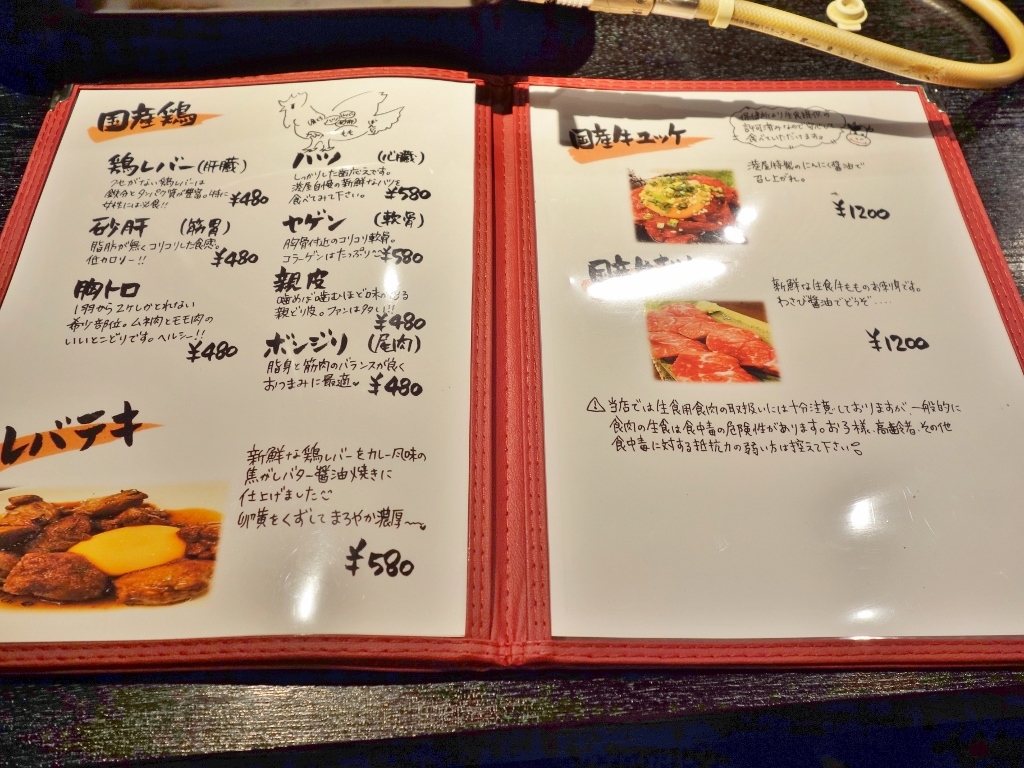 国産鶏
鶏レバー(肝臓)
クセがない鶏レバーは
鉄分とタンパク質が豊富。特に
女性には必食!!
¥480
砂肝 (筋胃)
脂肪が無くコリコリした食感。
低カロリー!!
¥480
胸トロ
1羽から2ケしかとれない
希少部位。ムネ肉とモモ肉の
いいとこどりです。ヘルシー!!
¥480
ハツ (心臓)
しっかりした歯応えです。
港屋自慢の新鮮なハツを
食べてみて下さい。
¥580
ヤゲン (軟骨)
胸骨付近のコリコリ軟骨。
コラーゲンはたっぷり
¥580
親皮
噛めば噛むほど味が出る
親どり皮。ファンは多い!!
¥480
ボンジリ (尾肉)
脂身と筋肉のバランスが良く
おつまみに最適
¥480
レバテキ
新鮮な鶏レバーをカレー風味の
焦がしバター醤油焼きに
仕上げました
卵黄をくずしてまろやか濃厚〜
¥580
国産牛ユッケ
保健所より生食提供の
許可済みなので安心して
食べていただけます。
港屋特製のにんにく醤油で
召し上がれ。
¥1200
国産牛
新鮮な生食牛もものお刺身です。
わさび醤油でどうぞ....
¥1200
⚠当店では生食用食肉の取扱いには十分注意しておりますが、一般的に
食肉の生食は食中毒の危険性があります。お子様、高齢者、その他
食中毒に対する抵抗力の弱い方は控えて下さい。